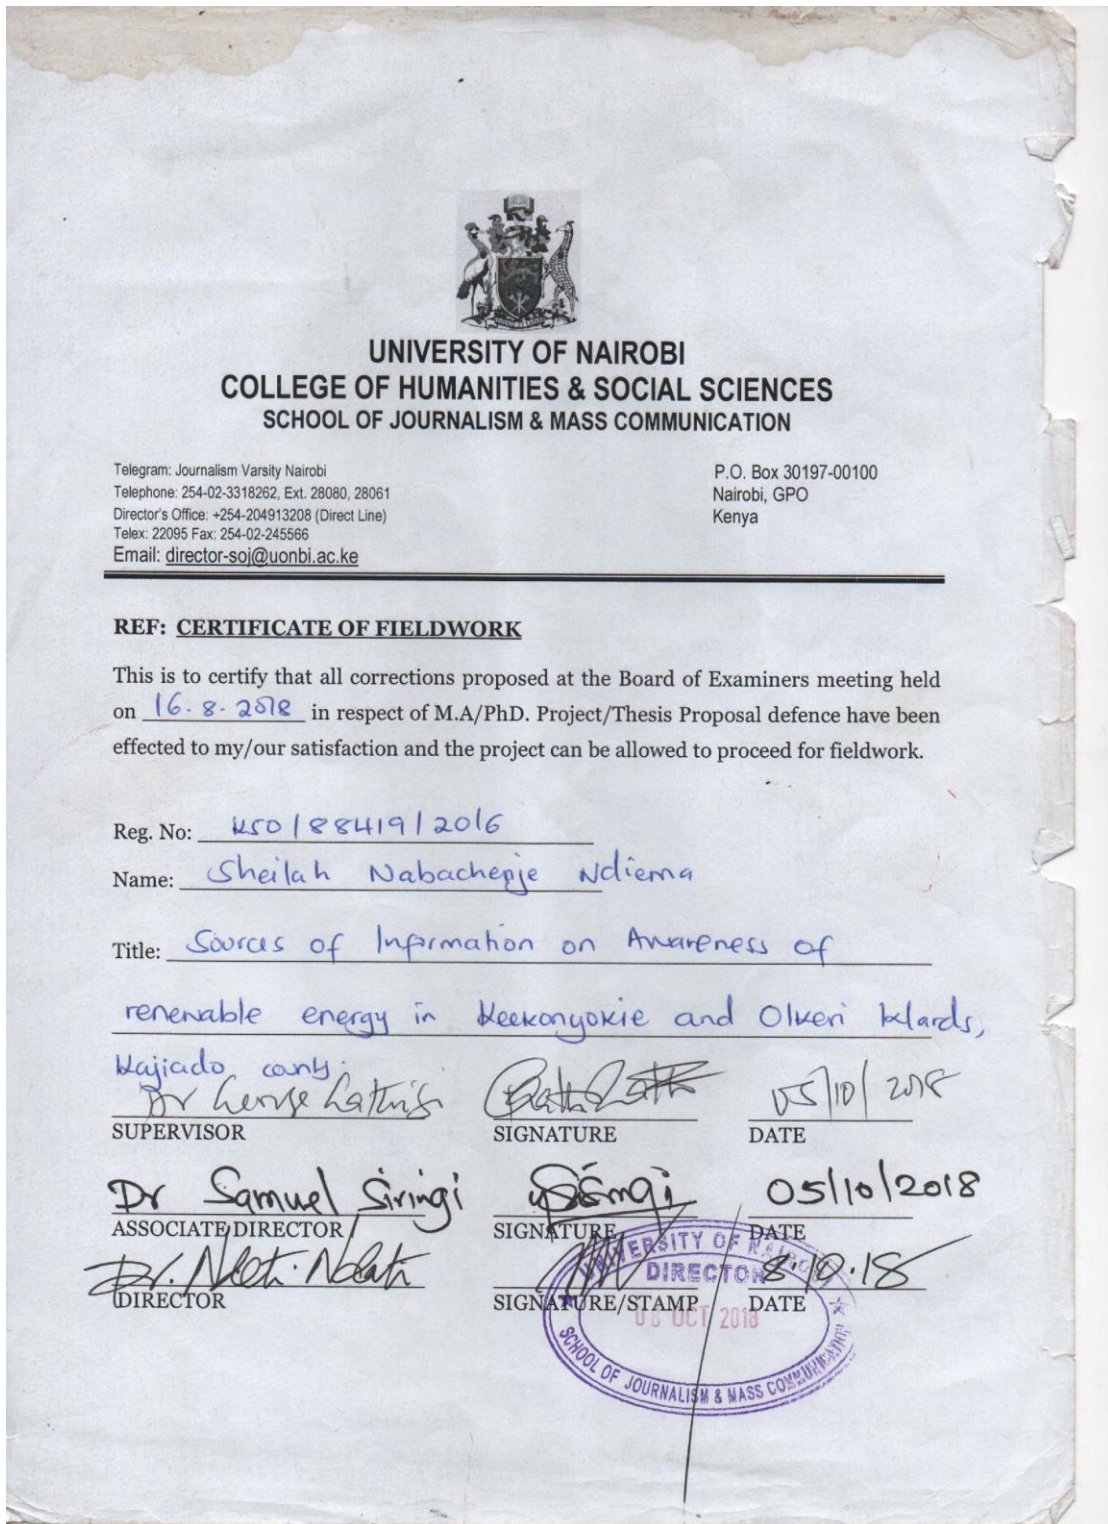 UNIVERSITY OF NAIROBI
COLLEGE OF HUMANITIES & SOCIAL SCIENCES
SCHOOL OF JOURNALISM & MASS COMMUNICATION
Telegram: Journalism Varsity Nairobi
Telephone: 254-02-3318262, Ext. 28080, 28061
Director's Office: +254-204913208 (Direct Line)
Telex: 22095 Fax: 254-02-245566
Email: director-soj@uonbi.ac.ke
P.O. Box 30197-00100
Nairobi, GPO
Kenya
REF: CERTIFICATE OF FIELDWORK
This is to certify that all corrections proposed at the Board of Examiners meeting held
on 16.8.2018 in respect of M.A/PhD. Project/Thesis Proposal defence have been
effected to my/our satisfaction and the project can be allowed to proceed for fieldwork.
Reg. No: K50/88419/2016
Name: Sheilah Nabachenje Ndiema
Title: Sources of Information on Awareness of
renewable energy in Keekonyokie and Olkeri Wards,
Kajiado county.
Dr George 05/10/2018
SUPERVISOR SIGNATURE DATE
Dr Samuel Siringi 05/10/2018
ASSOCIATE DIRECTOR SIGNATURE DATE
Dr. Ndeti Ndati 8.10.18
DIRECTOR SIGNATURE/STAMP DATE
UNIVERSITY OF NAIROBI
DIRECTOR
08 OCT 2018
SCHOOL OF JOURNALISM & MASS COMMUNICATION